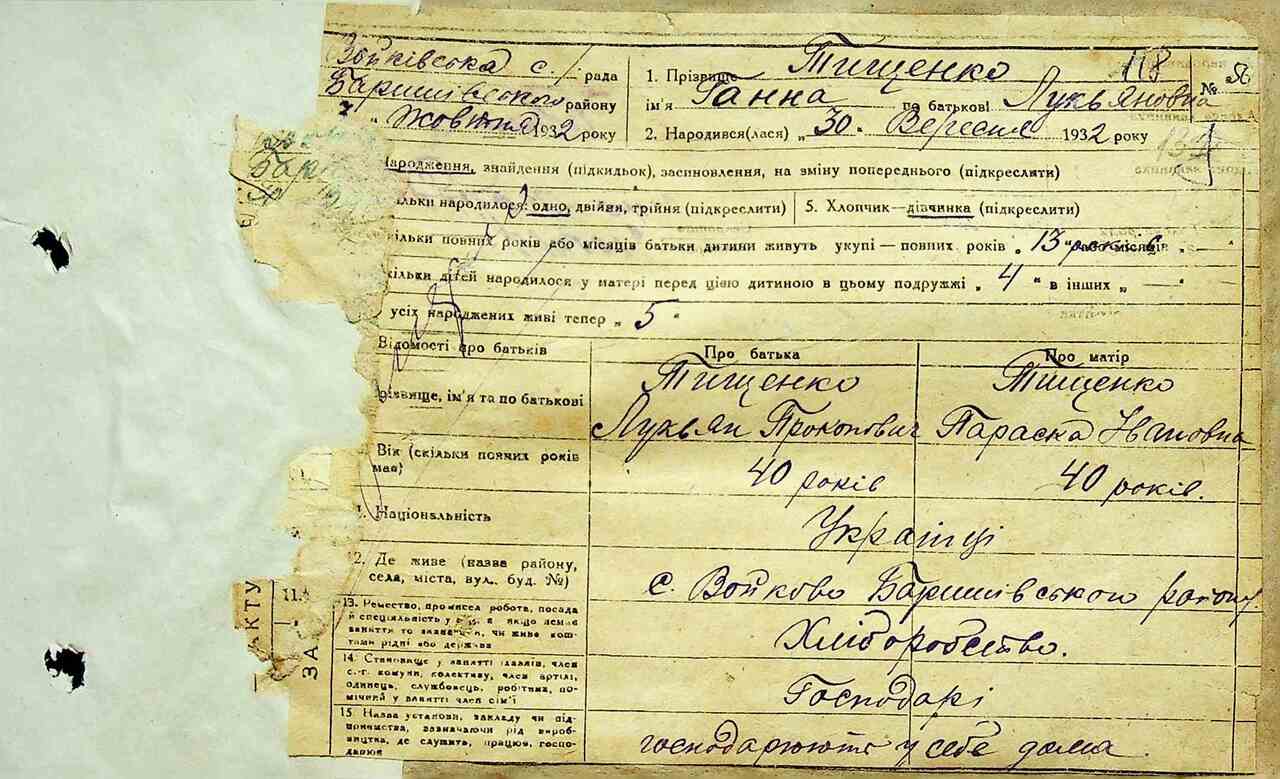 Войківська с. рада
Баришівського району
" Жовтня 1932 року
1. Прізвище Тищенко 118
№
ім'я Ганна по батькові Лукьяновна
2. Народився(лася) „ 30. Вересня 1932 року
Народження, знайдення (підкидьок), засиновлення, на зміну попереднього (підкреслити)
народилося: одно, двійня, трійня (підкреслити) 5. Хлопчик—дівчинка (підкреслити)
повних років або місяців батьки дитини живуть укупі — повних років „ 13
дітей народилося у матері перед цією дитиною в цьому подружжі „ 4 " в інших „ — "
усіх народжених живі тепер „ 5 "
Відомості про батьків Про батька Про матір
ім'я та по батькові
Тищенко Тищенко
Лукьян Прокопович Параска Івановна
Вік (скільки повних років має) 40 років 40 років.
Національність Українці
12. Де живе (назва району, села, міста, вул. буд. №) с. Войково Баришівського району.
АКТУ
ЗА
13. Ремество, промисел робота, посада
й спеціальність у якщо немає
заняття то зазначити, чи живе кош-
тами рідні або держави
Хліборобство.
14. Становище у занятті (хазяїн, член
с.-г. комуни, колективу, член артілі,
одинець, службовець, робітник, по-
мічний у занятті член сім'ї
Господарі
15. Назва установи, закладу чи під-
приємства, зазначаючи рід вироб-
ництва, де служить, працює, госпо-
дарює
господарюють у себе дома.